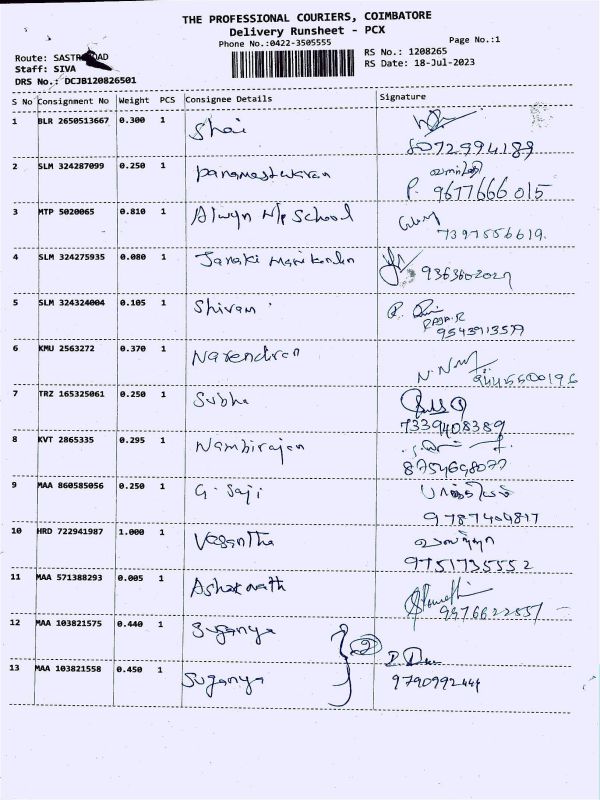 THE PROFESSIONAL COURIERS, COIMBATORE
Delivery Runsheet - PCX
Phone No.:0422-3505555
Page No.:1
Route: SASTRI ROAD
RS No.: 1208265
Staff: SIVA
RS Date: 18-Jul-2023
DRS No.: DCJB120826501
S No Consignment No Weight PCS Consignee Details Signature
1 BLR 2650513667 0.300 1 Shai
8072994189
2 SLM 324287099 0.250 1
P. 9677666015
3 MTP 5020065 0.810 1 Alwyn N/P School
7397556619.
4 SLM 324275935 0.080 1 Janaki Manikandan
9363602027
5 SLM 324324004 0.105 1 Shivam
RAJA.R
9543913577
6 KMU 2563272 0.370 1 Narendran
9445500196
7 TRZ 165325061 0.250 1 Subha
7339408389
8 KVT 2865335 0.295 1 Nambirajan
8754698077
9 MAA 860585056 0.250 1 G. Saji
9787409817
10 HRD 722941987 1.000 1 Vasantha
9751735552
11 MAA 571388293 0.005 1 Ashok nath
9976622557
12 MAA 103821575 0.440 1 Suganya
2
13 MAA 103821558 0.450 1 Suganya
9790992444